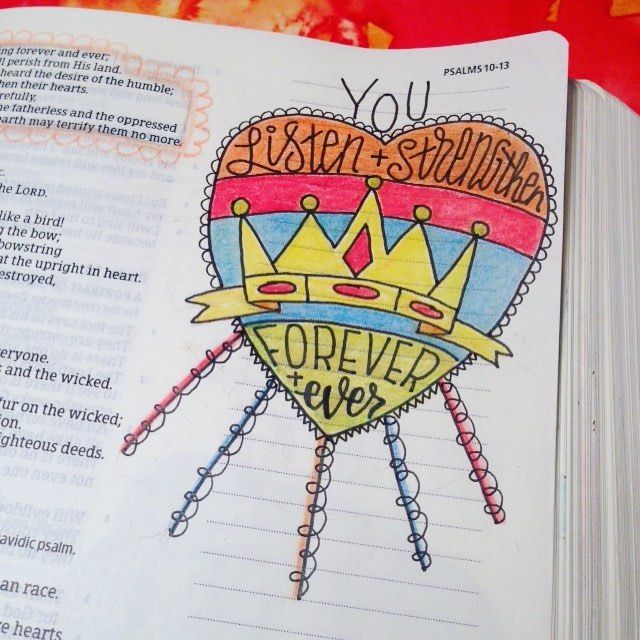 ng forever and ever;
ll perish from His land.
heard the desire of the humble;
hen their hearts.
refully,
he fatherless and the oppressed
earth may terrify them no more.
he LORD.
like a bird!
g the bow;
bowstring
at the upright in heart.
estroyed,
veryone.
s and the wicked.
fur on the wicked;
ion.
ighteous deeds.
avidic psalm.
an race.
e hearts
PSALMS 10-13
YOU
Listen + Strengthen
FOREVER
+ ever